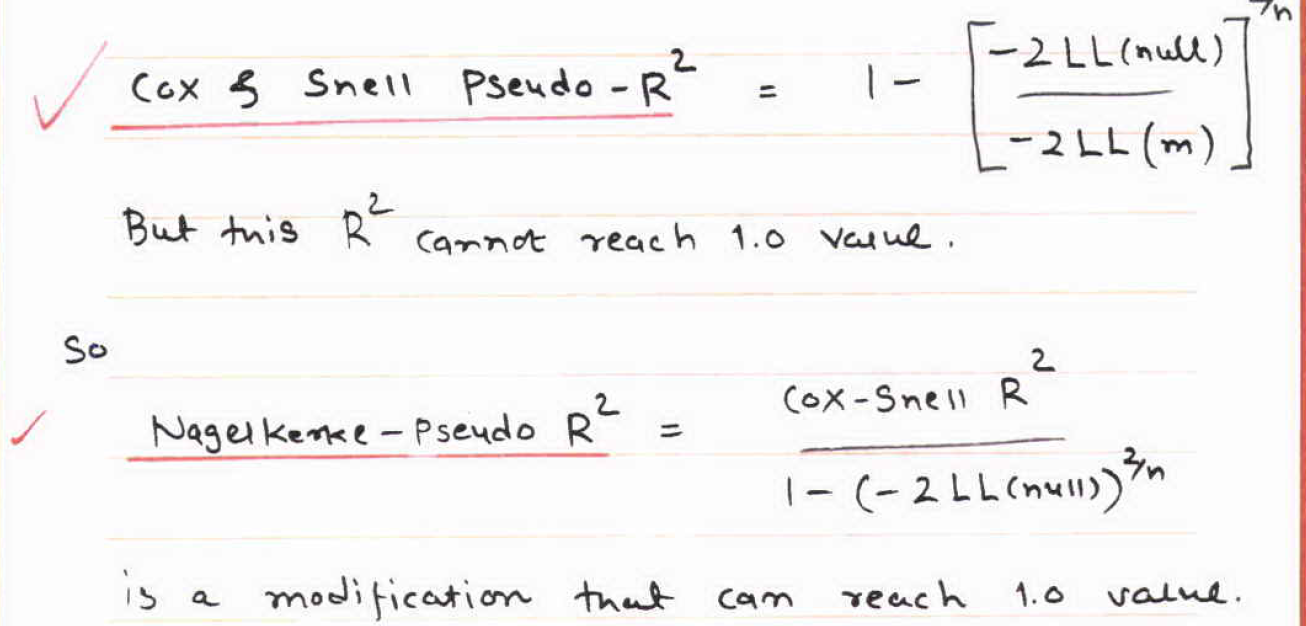 Cox & Snell Pseudo-R² = 1 - [-2LL(null) / -2LL(m)]^2/n
But this R² cannot reach 1.0 value.
So
Nagelkerke-Pseudo R² = Cox-Snell R² / 1-(-2LL(null))^2/n
is a modification that can reach 1.0 value.